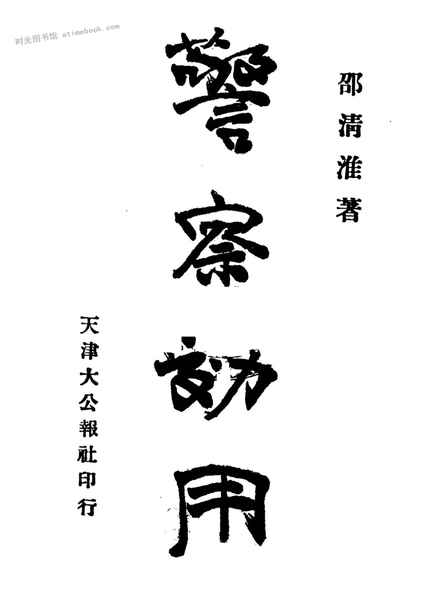 时光图书馆 atimebook.com
邵清淮著
警察効用
天津大公報社印行